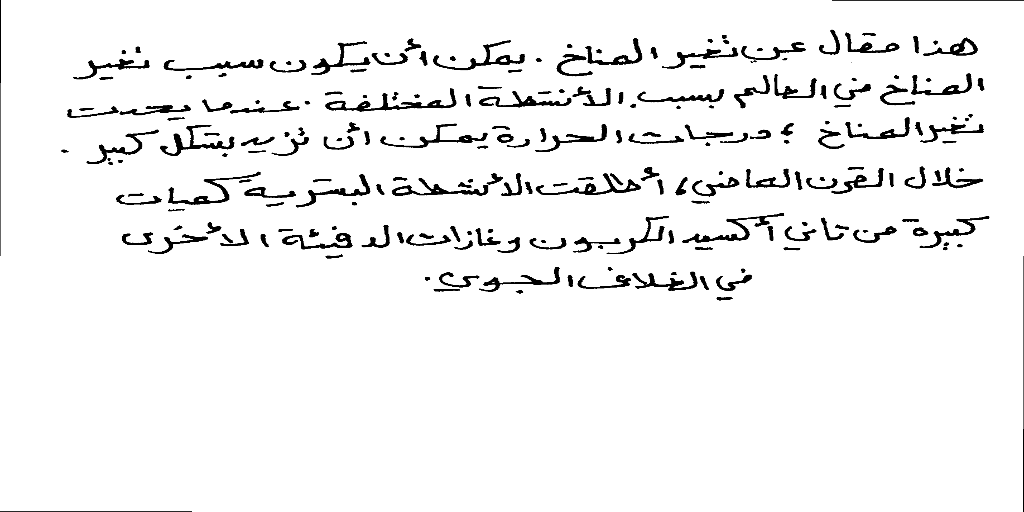 هذا مقال عن تغير المناخ . يمكن أن يكون سبب تغير
المناخ في العالم بسبب الأنشطة المختلفة . عندما يحدث
تغير المناخ ، درجات الحرارة يمكن أن تزيد بشكل كبير .
خلال القرن الماضي ، أطلقت الأنشطة البشرية كميات
كبيرة من ثاني أكسيد الكربون وغازات الدفيئة الأخرى
في الغلاف الجوي .